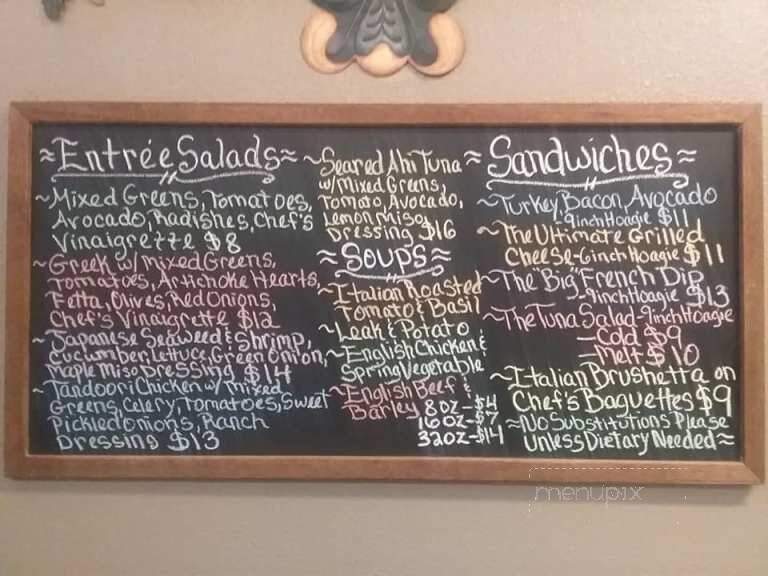 ≈Entrée Salads≈
~Mixed Greens, Tomatoes,
Avocado, Radishes, Chef's
Vinaigrette $8
~Greek w/ Mixed Greens,
Tomatoes, Artichoke Hearts,
Fetta, Olives, Red Onions,
Chef's Vinaigrette $12
~Japanese Seaweed & Shrimp,
Cucumber, Lettuce, Green Onion,
Maple Miso Dressing $14
~Tandoori Chicken w/ Mixed
Greens, Celery, Tomatoes, Sweet
Pickled Onions, Ranch
Dressing $13
~Seared Ahi Tuna
w/ Mixed Greens,
Tomato, Avocado,
Lemon Miso
Dressing $16
≈Soups≈
~Italian Roasted
Tomato & Basil
~Leak & Potato
~English Chicken &
Spring Vegetable
~English Beef &
Barley 8oz-$4
16oz-$7
32oz-$14
≈Sandwiches≈
~Turkey, Bacon, Avocado
-9inch Hoagie $11
~The Ultimate Grilled
Cheese-6inch Hoagie $11
~The "Big" French Dip
-9inch Hoagie $13
~The Tuna Salad-9inch Hoagie
-Cold $9
-Melt $10
~Italian Brushetta on
Chef's Baguettes $9
≈No Substitutions Please
Unless Dietary Needed≈
menupix